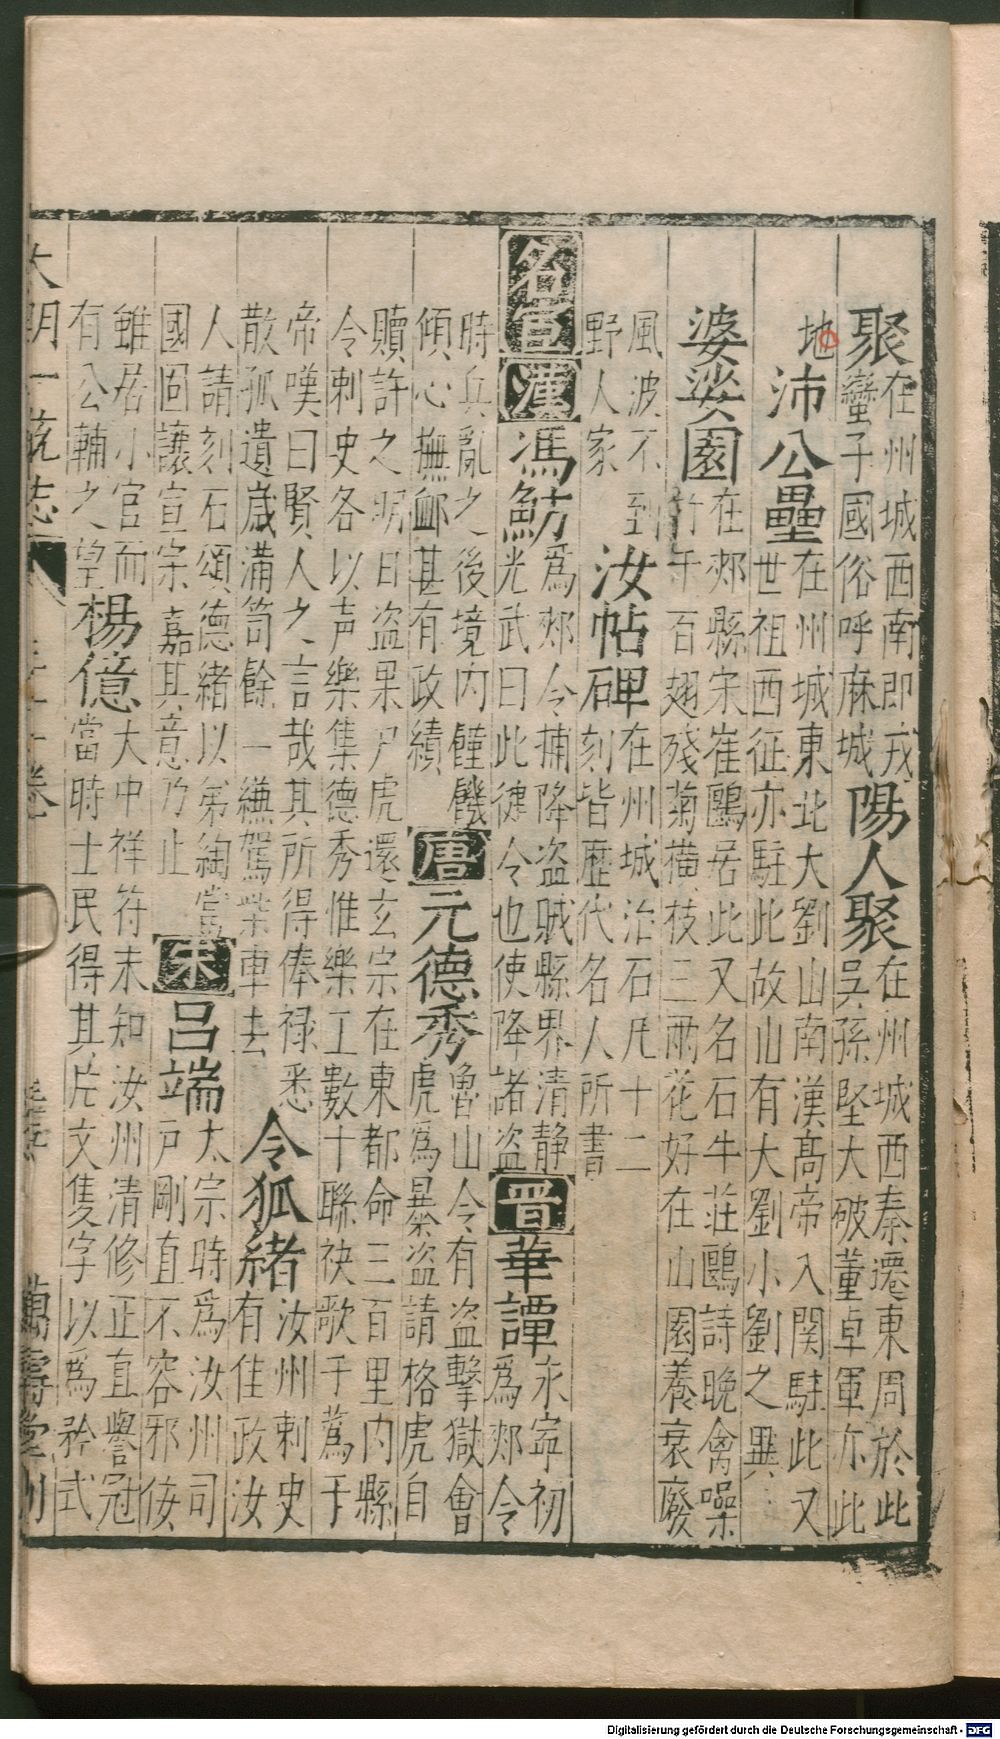 聚在州城西南即戎
蠻子國俗呼麻城陽人聚在州城西秦遷東周於此
吳孫堅大破董卓軍亦此
地沛公壘在州城東北大劉山南漢高帝入関駐此又
世祖西征亦駐此故山有大劉小劉之異
婆娑園在郟縣宋崔鷗居此又名石牛莊鷗詩晚禽噪
竹午百翅殘菊橫枝三兩花好在山園養衰廢
風波不到
野人家汝帖碑在州城治石凡十二
刻皆歷代名人所書
名宦漢馮魴為郟令捕降盜賊縣界清靜
光武曰此健令也使降諸盜晉華譚永寧初
為郟令
時兵亂之後境內饉饑
傾心撫䘏甚有政績唐元德秀魯山令有盜擊獄會
虎為暴盜請格虎自
贖許之明日盜果尸虎還玄宗在東都命三百里內縣
令刺史各以声樂集德秀惟樂工數十聯袂歌于蔿于
帝嘆曰賢人之言哉其所得俸祿悉
散孤遺歲滿笥餘一縑駕柴車去令狐緒汝州刺史
有佳政汝
人請刻石頌德緒以弟綯當
國固讓宣宗嘉其意乃止宋呂端太宗時為汝州司
戶剛直不容邪佞
雖居小官而
有公輔之望楊億大中祥符末知汝州清修正直譽冠
當時士民得其片文隻字以為矜式
大明一統志 卷 萬壽堂刊
Digitalisierung gefördert durch die Deutsche Forschungsgemeinschaft - DFG